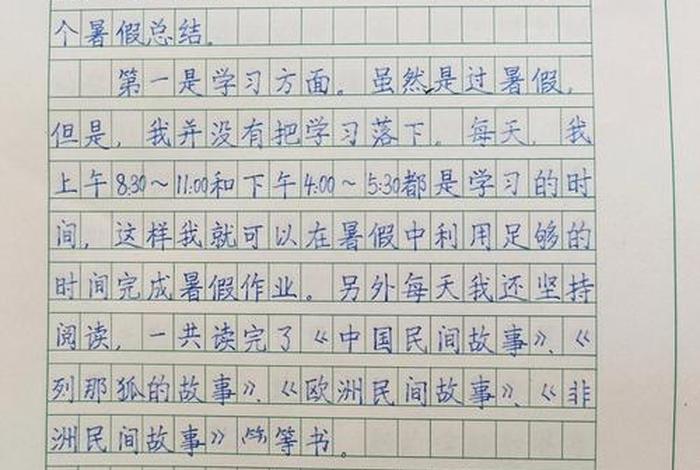 个暑假总结。
第一是学习方面。虽然是过暑假,
但是,我并没有把学习落下。每天,我
上午8:30~11:00和下午4:00~5:30都是学习的时
间,这样我就可以在暑假中利用足够的
时间完成暑假作业。另外每天我还坚持
阅读,一共读完了《中国民间故事》、《
列那狐的故事》、《欧洲民间故事》、《非
洲民间故事》等书。